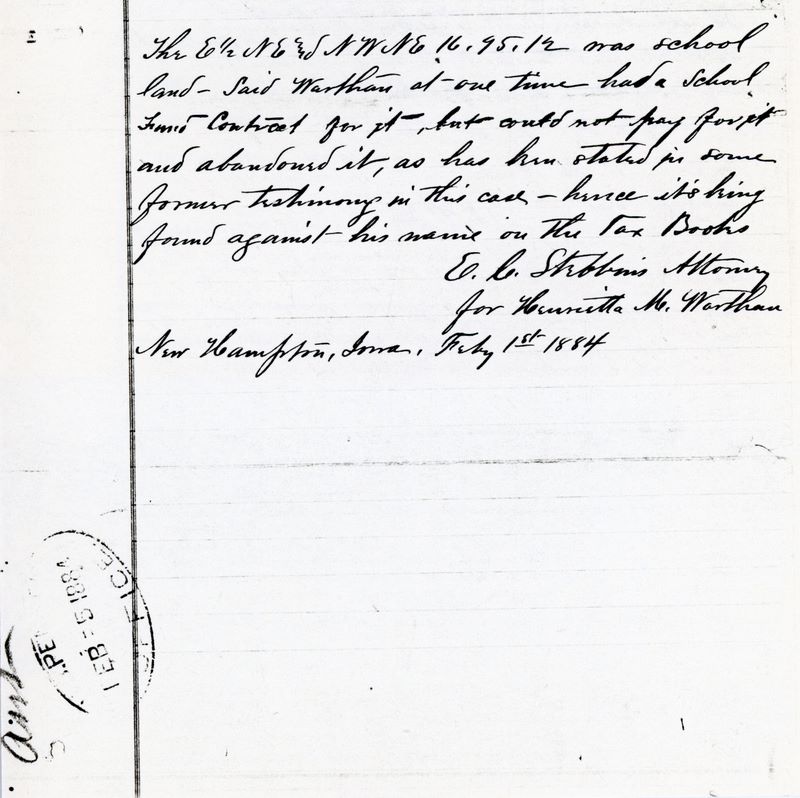 The E½ NE & NW NE 16.95.12 was school
land – Said Wartham at one time had a School
Fund Contract for it, but could not pay for it
and abandoned it, as has been stated in some
former testimony in this case – hence it's being
found against his name on the Tax Books
E. C. Stebbins Attorney
for Henrietta M. Wartham
New Hampton, Iowa. Feby 1st 1884
FEB 5 1884